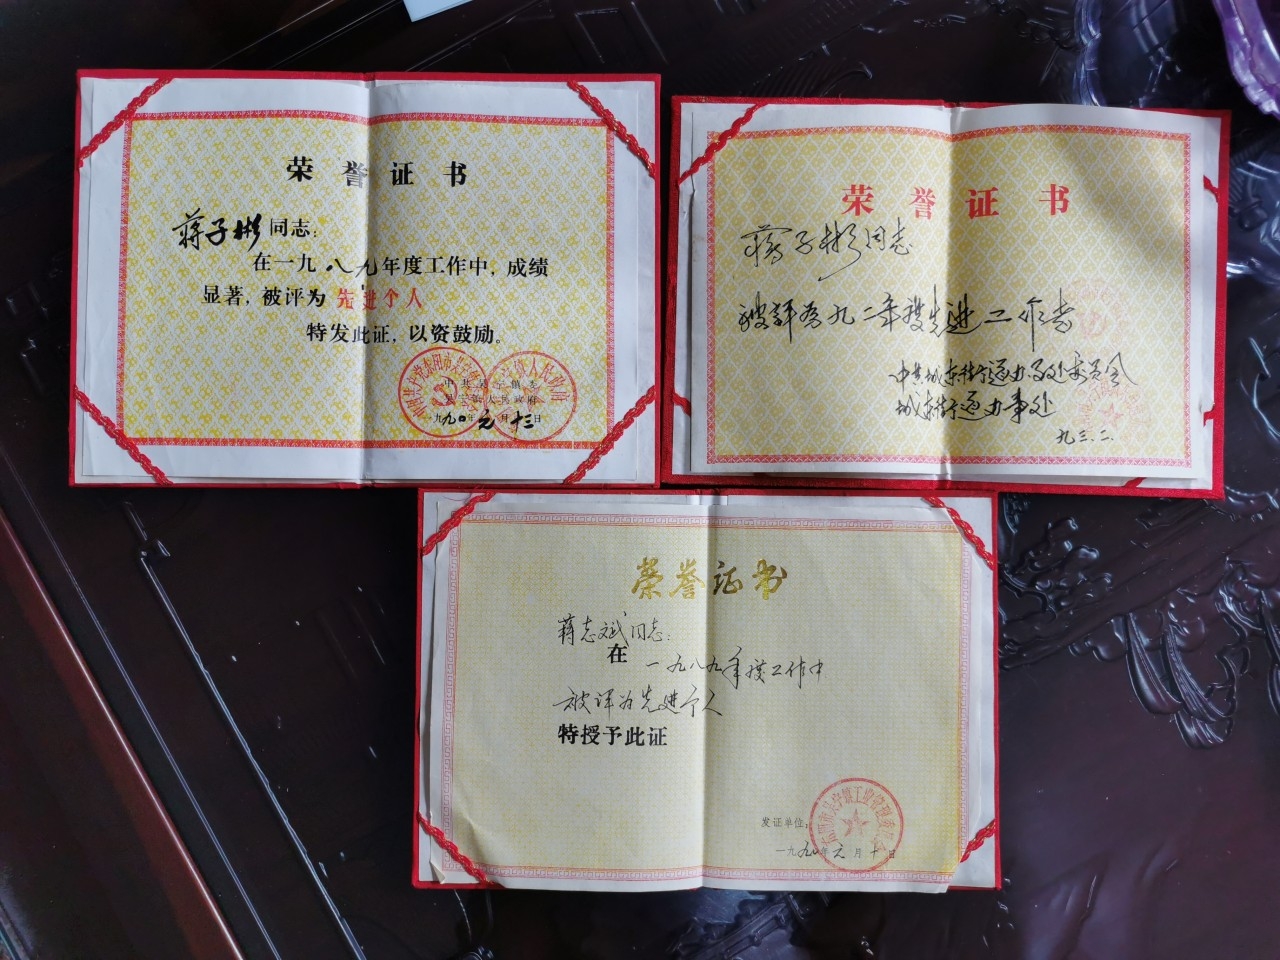 荣誉证书
蒋子彬同志：
在一九八九年度工作中，成绩
显著，被评为先进个人
特发此证，以资鼓励。
中共吴宁镇委
吴宁镇人民政府
一九九〇年元月十三日
荣誉证书
蒋子彬同志
被評为九二年度先进工作者
中共城东街道办事处委员会
城东街道办事处
九三.二.
荣誉证书
蒋志斌同志：
在一九八九年度工作中
被评为先进个人
特授予此证
发证单位：
一九九〇年元月十日